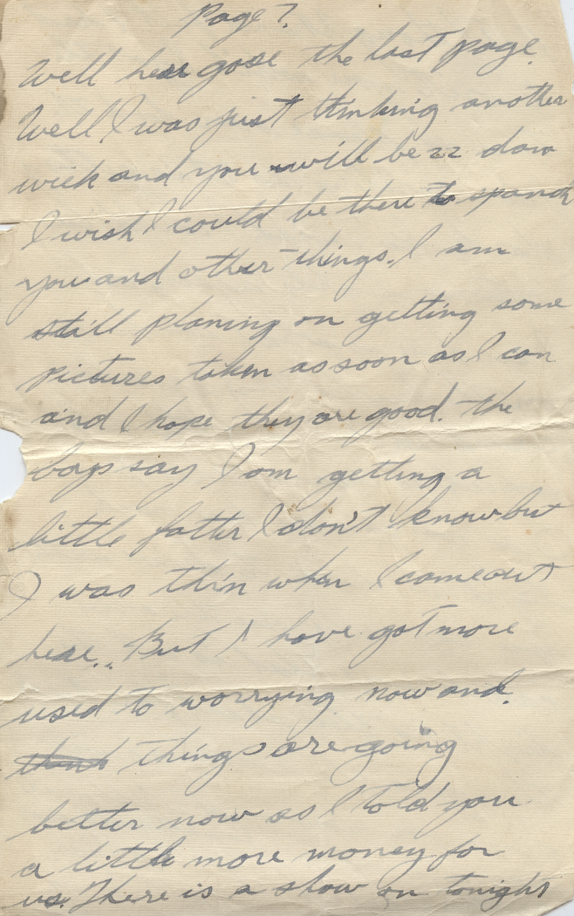 Page 7.
Well hear gose the last page.
Well I was just thinking another
wiek and you will be 22 dam
I wish I could be there to spank
you and other things. I am
still planing on getting some
pictures taken as soon as I can
and I hope they are good. the
boys say I am getting a
little fatter I don't know but
I was thin when I come out
hear. But I have got more
used to worrying now and
things are going
better now as I told you
a little more money for
us. There is a show on tonight